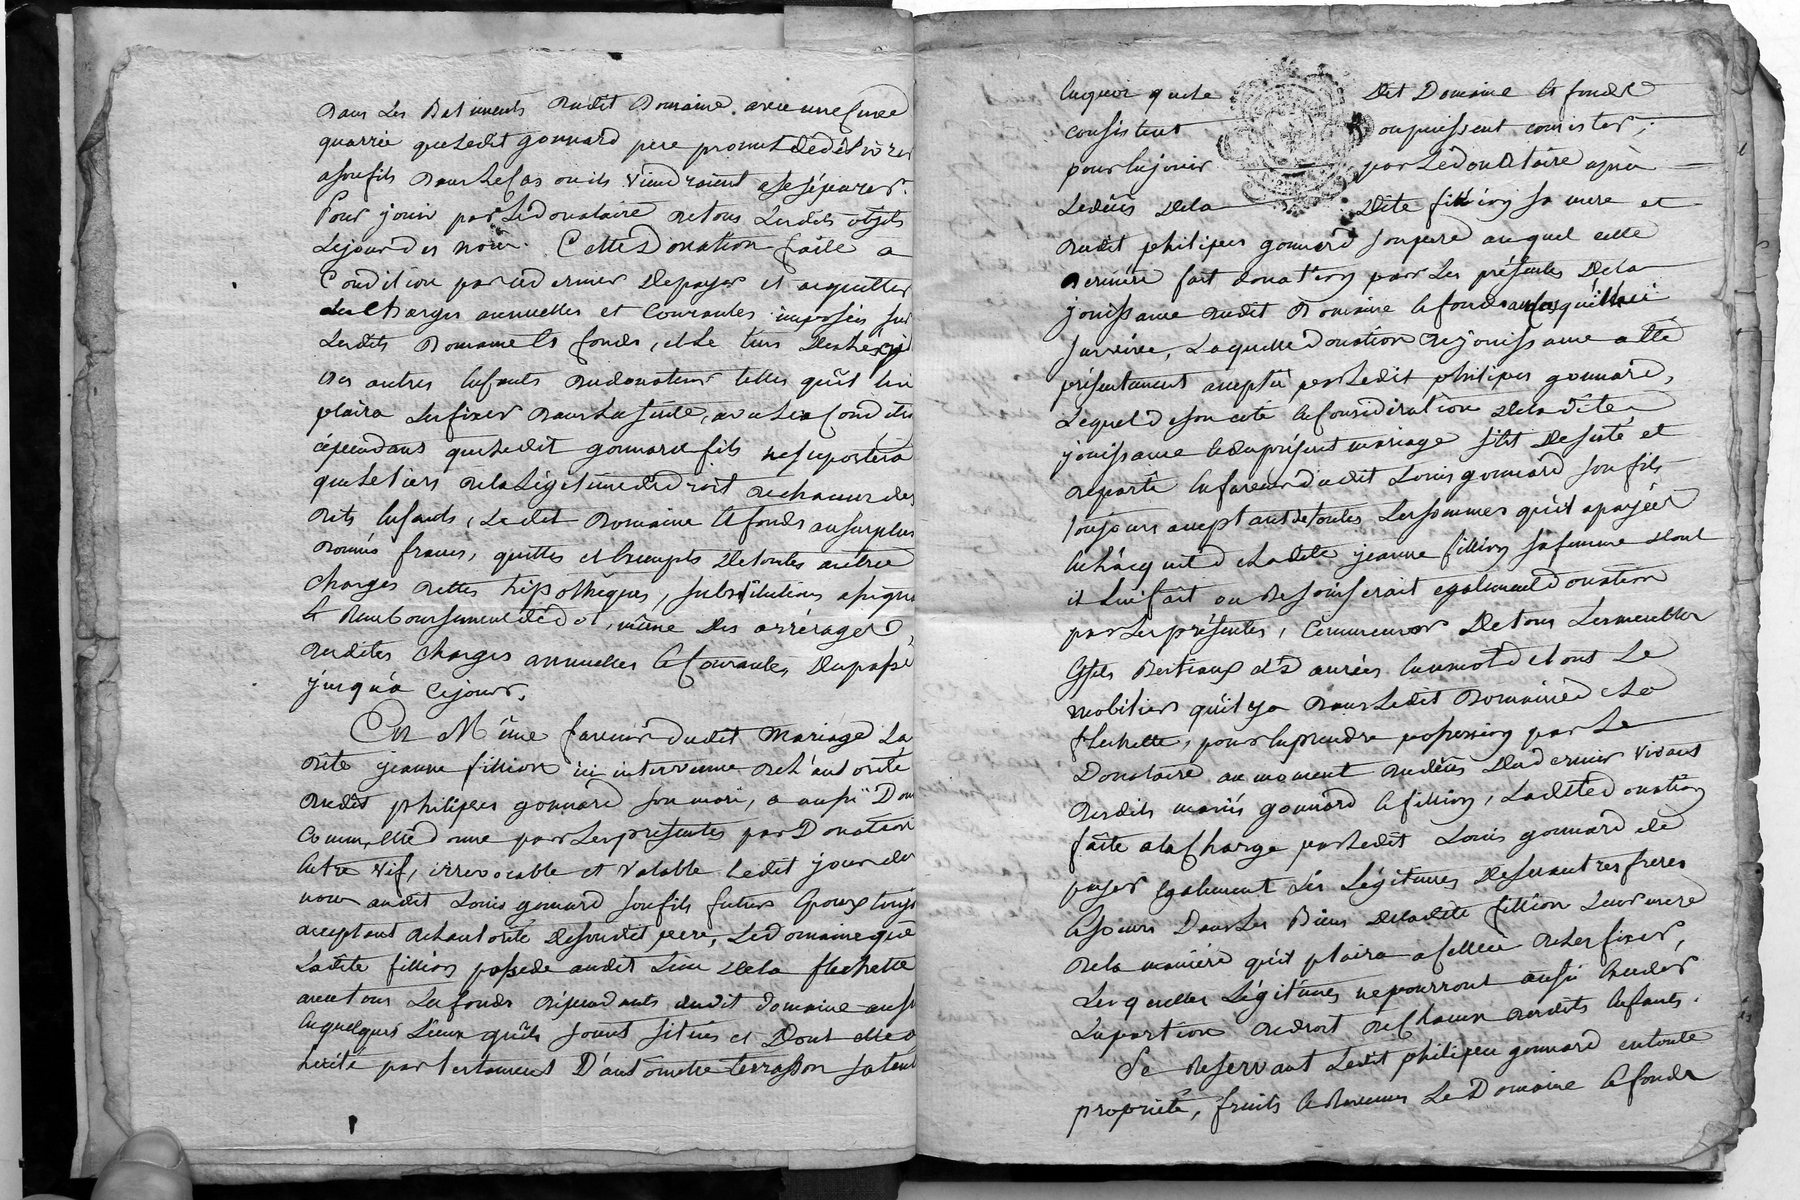 dans les Batiments dudit Domaine avec une Cuve
quarrée que ledit gonnard pere promet de délivrer
a son fils dans le Cas ou ils viendroient a se séparer.
Pour jouir par le donataire de tous lesdits objets
le jour des noces. Cette Donation faite a
Condition par ce dernier de payer et acquitter
les Charges annuelles et Courantes imposées sur
lesdits Domaine et fonds, et le tiers
des autres enfants du donateur telles qu'il lui
plaira les fixer dans la suite, avec la Condition
cependant que ledit gonnard fils ne suportera
que le tiers de la Légitime de droit de chacun des
dits enfants, ledit Domaine et fonds au surplus
donnés francs, quittes et Exempts de toutes autres
charges dettes hipothèques, substitutions
et Rembourcement même des arrérages
desdites charges annuelles et Courantes, du passé
jusqu'a ce jour.
En Même faveur dudit Mariage La
dite jeanne fillion ici intervenue de l'autorité
dudit philipes gonnard son mari, a aussi Donné
Comme Elle donne par les présentes par Donation
entre vif, irrevocable et valable ledit jour des
noces audit Louis gonnard son fils futur Epoux toujours
acceptant de l'autorité de sondit pere, le domaine que
ladite fillion possede audit Lieu de la flechette
avec tous les fonds dépendants dudit domaine aussi
en quelques Lieux qu'ils soient situés et Dont elle a
herité par testament D'antoinette terrasson sa tante
en quoi que le dit Domaine et fonds
consistent ou puissent consister;
pour en jouir par le donataire après
le décès de la dite fillion sa mere et
dudit philipes gonnard son pere auquel cette
derniere fait donation par les présentes de la
jouissance dudit Domaine et fonds
survivre, Laquelle donation de jouissance a été
présentement acceptée par ledit philipes gonnard,
Lequel de son coté en Consideration de la dite
jouissance et du présent mariage s'est desisté et
départi en faveur dudit Louis gonnard son fils
toujours acceptant de toutes les sommes qu'il a payées
en l'acquit de ladite jeanne fillion sa femme dont
il lui fait au besoin serait egalement donation
par les présentes, Comme encor de tous les meubles
Effets Bestiaux et denrées en un mot de tout le
mobilier qu'il y a dans ledit Domaine de la
flechette, pour en prendre possession par le
Donataire au moment du décès du dernier vivant
desdits mariés gonnard et fillion, Ladite donation
faite a la Charge par ledit Louis gonnard de
payer Egalement les Légitimes de ses autres freres
et soeurs dans les Biens de ladite fillion leur mere
de la maniere qu'il plaira a celle ci de les fixer,
Lesquelles Légitimes ne pourront aussi Exceder
La portion de droit de Chacun desdits Enfants.
Se Reservant ledit philipes gonnard en toute
propriété, fruits et Revenus Le Domaine et fonds